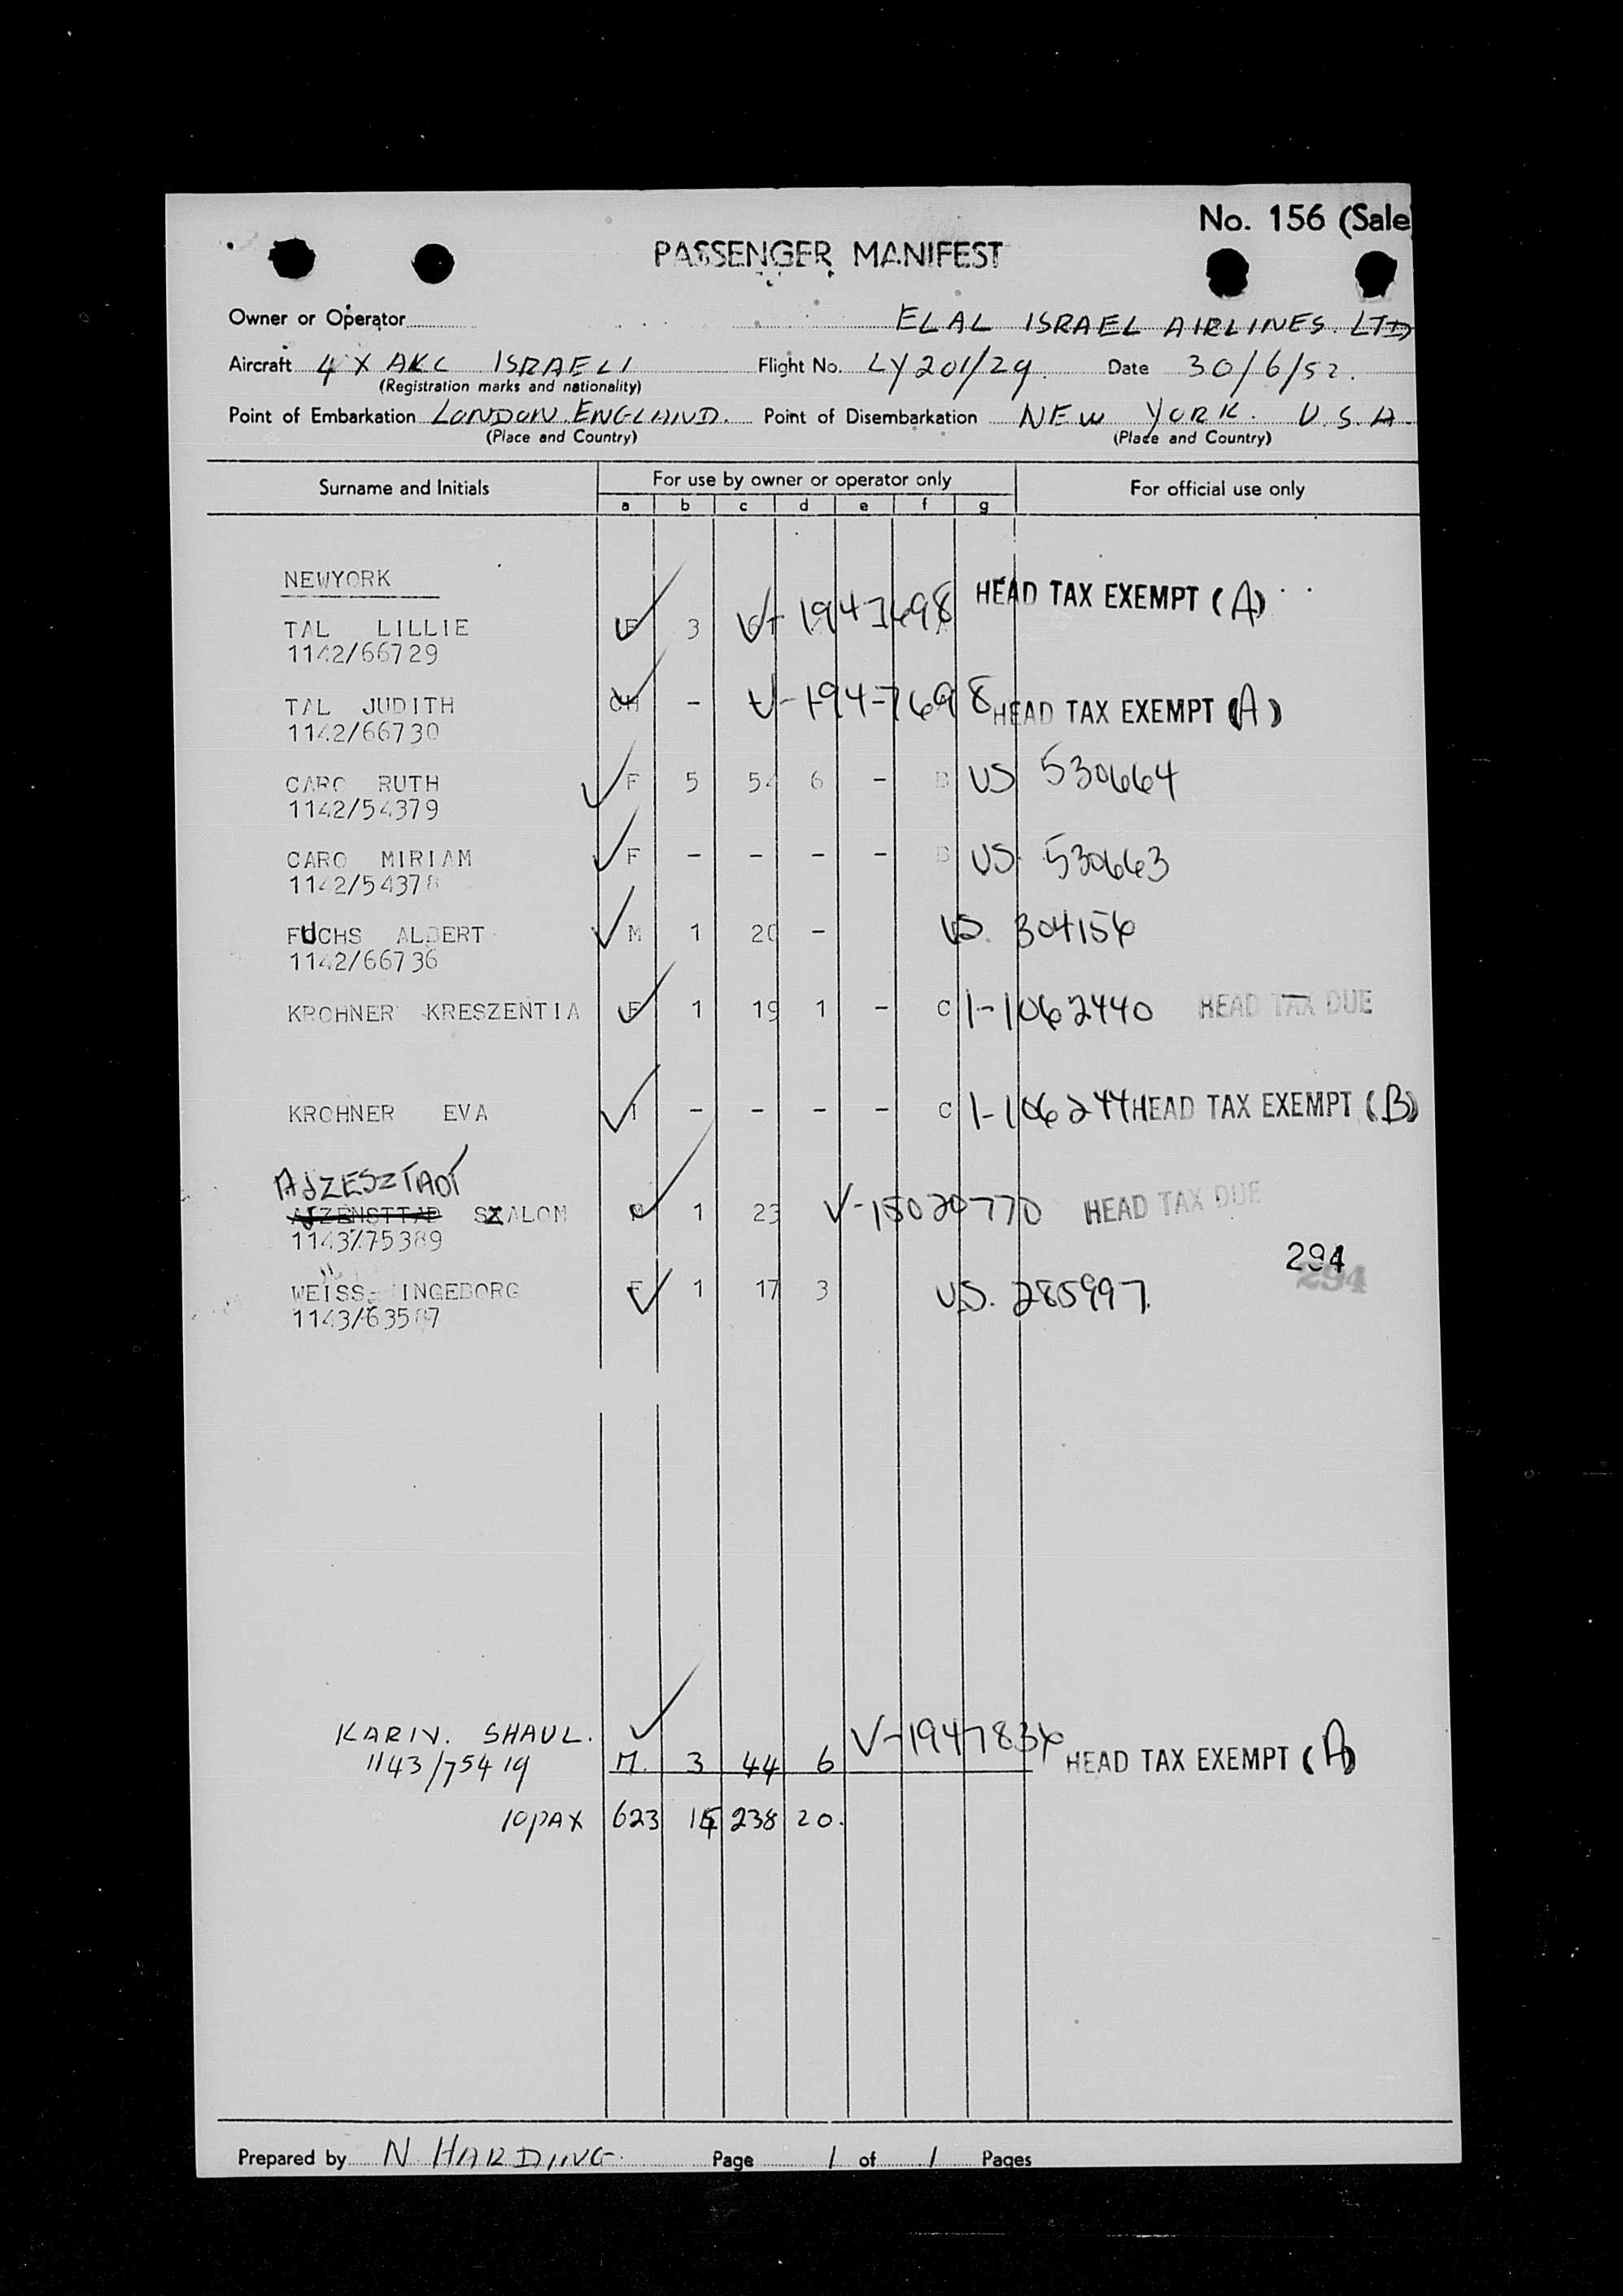 No. 156 (Sale
PASSENGER MANIFEST
Owner or Operator ELAL ISRAEL AIRLINES. LTD
Aircraft 4X AKC ISRAELI Flight No. LY 201/29. Date 30/6/52.
(Registration marks and nationality)
Point of Embarkation LONDON. ENGLAND. Point of Disembarkation NEW YORK. U.S.A.
(Place and Country) (Place and Country)
Surname and Initials For use by owner or operator only For official use only
a b c d e f g
NEWYORK
TAL LILLIE F 3 V-1947698 HEAD TAX EXEMPT (A)
1142/66729
TAL JUDITH CH - V-1947698 HEAD TAX EXEMPT (A)
1142/66730
CARO RUTH F 5 54 6 - B US 530664
1142/54379
CARO MIRIAM F - - - - B US 530663
1142/54378
FUCHS ALBERT M 1 20 - US. 304156
1142/66736
KROHNER KRESZENTIA F 1 19 1 - C 1-1062440 HEAD TAX DUE
KROHNER EVA - - - - C 1-106244 HEAD TAX EXEMPT (B)
AJZESZTADT
SZALOM M 1 23 V-15020770 HEAD TAX DUE
1143/75389
294
294
WEISS- INGEBORG F 1 17 3 US. 285997.
1143/63587
KARIV. SHAUL. V-1947836
1143/75419 M. 3 44 6 HEAD TAX EXEMPT (A)
10 PAX 623 238 20.
Prepared by N HARDING. Page 1 of 1 Pages